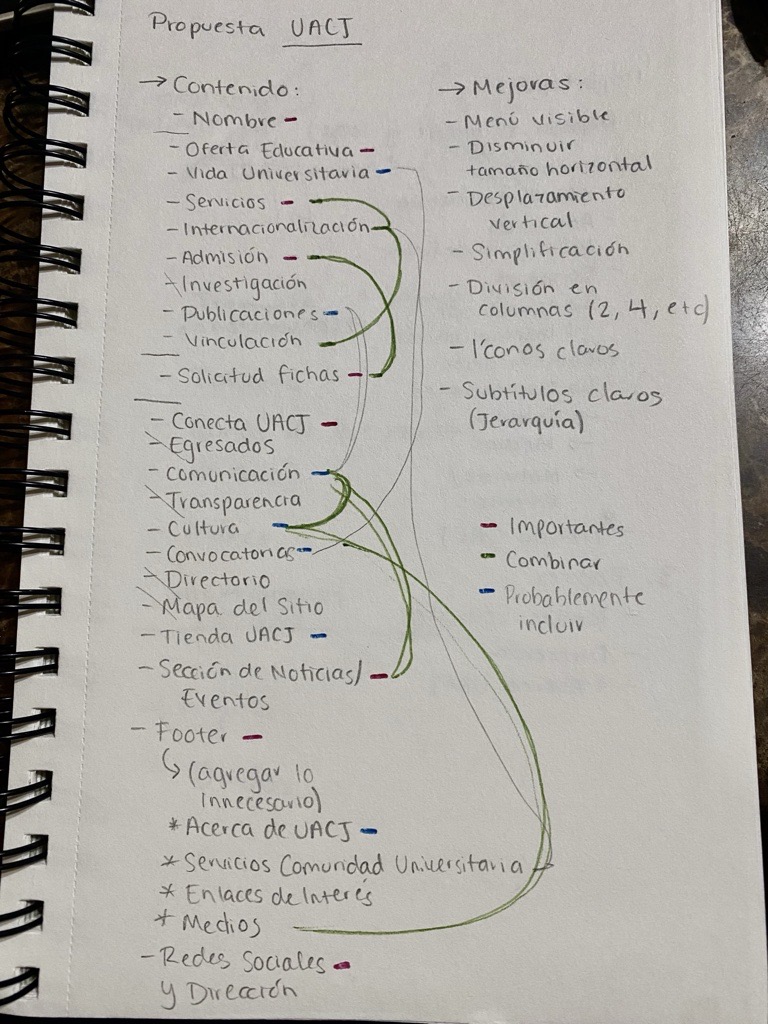 Propuesta UACJ
→ Contenido:
- Nombre -
- Oferta Educativa -
- Vida Universitaria -
- Servicios -
- Internacionalización
- Admisión -
- Investigación
- Publicaciones -
- Vinculación
- Solicitud fichas -
- Conecta UACJ -
- Egresados
- Comunicación -
- Transparencia
- Cultura -
- Convocatorias -
- Directorio
- Mapa del Sitio
- Tienda UACJ -
- Sección de Noticias/ -
Eventos
- Footer -
↳ (agregar lo
innecesario)
* Acerca de UACJ -
* Servicios Comunidad Universitaria
* Enlaces de Interés
* Medios
- Redes Sociales -
y Dirección
→ Mejoras:
- Menú visible
- Disminuir
tamaño horizontal
- Desplazamiento
vertical
- Simplificación
- División en
columnas (2, 4, etc)
- Íconos claros
- Subtítulos claros
(Jerarquía)
- Importantes
- Combinar
- Probablemente
incluir